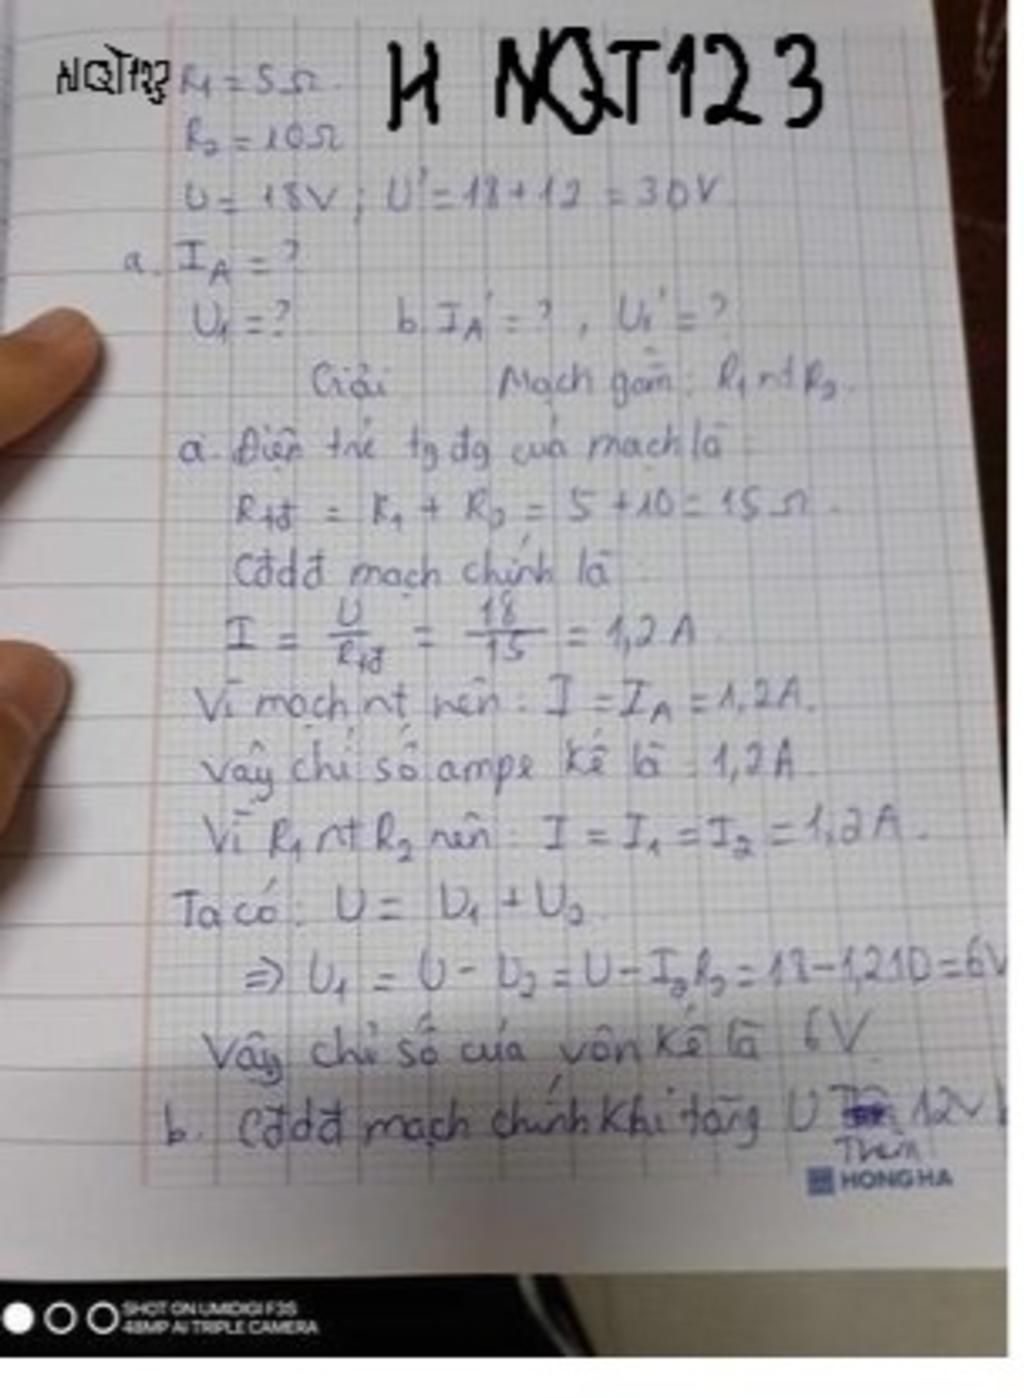 NQT123 H NQT123
R₁ = 5Ω
R₂ = 10Ω
U = 18V ; U' = 18+12 = 30V
a. I_A = ?
U₁ = ? b. I_A' = ? , U₁' = ?
Giải Mạch gồm: R₁ nt R₂.
a. Điện trở tg đg của mạch là
R_tđ = R₁ + R₂ = 5 + 10 = 15Ω.
Cđdđ mạch chính là
I = U/R_tđ = 18/15 = 1,2A
Vì mạch nt nên: I = I_A = 1,2A.
Vậy chỉ số ampe kế là 1,2A.
Vì R₁ nt R₂ nên: I = I₁ = I₂ = 1,2A.
Ta có: U = U₁ + U₂
⇒ U₁ = U - U₂ = U - I₂R₂ = 18-1,2.10=6V
Vậy chỉ số của vôn kế là 6V.
b. Cđdđ mạch chính khi tăng U 12V
Thêm
HONG HA
SHOT ON UMIDIGI F3S
48MP AI TRIPLE CAMERA